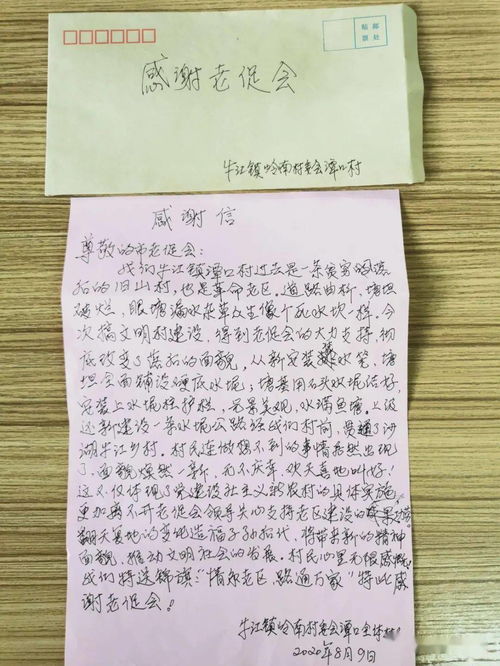 贴邮
票处
感谢老促会
牛江镇岭南村委会潭口村
感谢信
尊敬的市老促会：
我们牛江镇潭口村过去是一条贫穷
的旧山村，也是革命老区，道路曲折，塘坦
破烂，眼塘漏水杂草丛生像个死水坎一样，今
次搞文明村建设，得到老促会的大力支持，彻
底改变了落后的面貌，从新安装水笔，塘
坦全面铺设硬底水坭，塘基用石头水坭结好，
安装上水坭柱护栏，光景美观，水满鱼塘，上级
还新建设一条水坭公路强我们村前，贯通了沙
湖牛江乡村。村民连做想不到的事情居然出现
了，面貌焕然一新，无不庆幸，欢天喜地叫好！
这不仅体现了党建设社主义新农村的具体实施，
更加离不开老促会领导关心支持老区建设的成果
翻天复地的变化造福子孙后代，将带来新的精神
面貌，推动文明社会的发展，村民心里无限感慨，
我们特送锦旗："情系老区 路通万家"特此感
谢老促会！
牛江镇岭南村委会潭口全体村
2020年8月9日